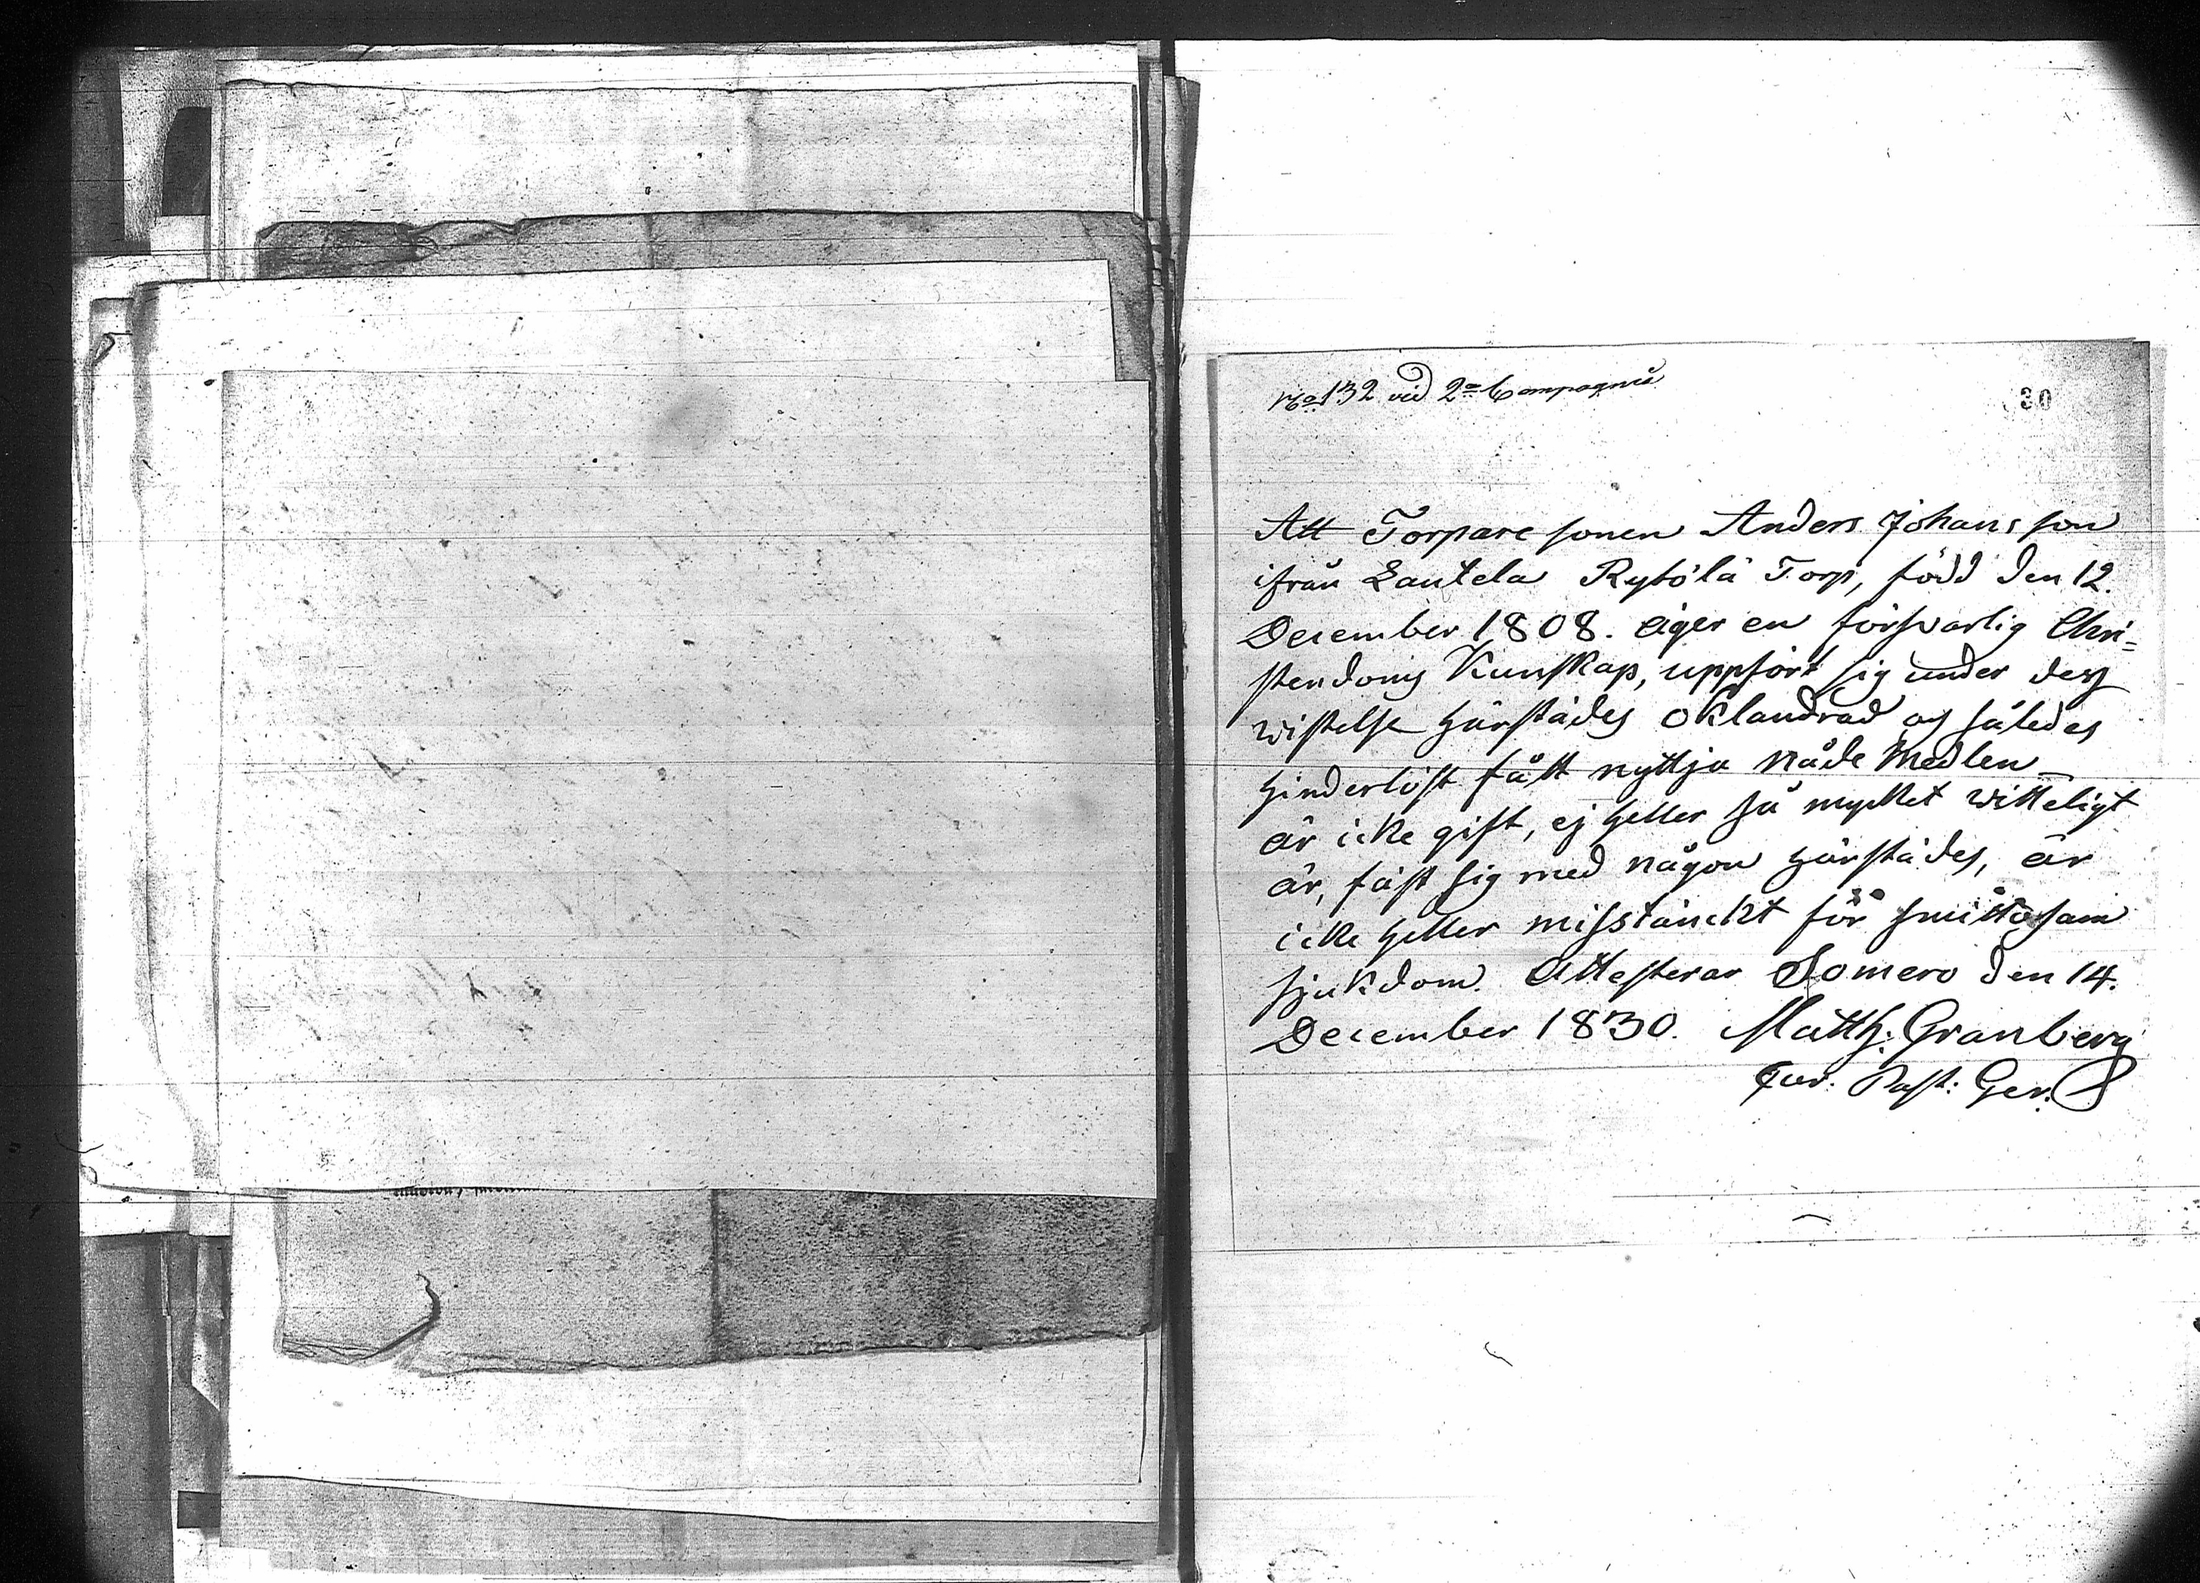 No 132 vid 2a Compagnie
30
Att Torpare sonen Anders Johansson
ifrån Lautela Rytölä Torp, född den 12.
December 1808. äger en försvarlig Chri=
stendoms Kunskap, uppfört sig under dess
wistelse härstädes oklandrad og således
hinderlöst fått nyttja Nåde Medlen
är icke gift, ej heller så mycket witteligt
är, fäst sig med någon härstädes, är
icke heller misstänckt för smittosam
sjukdom. Attesterar Somero den 14.
December 1830. Matth: Granberg
Past: Ger.